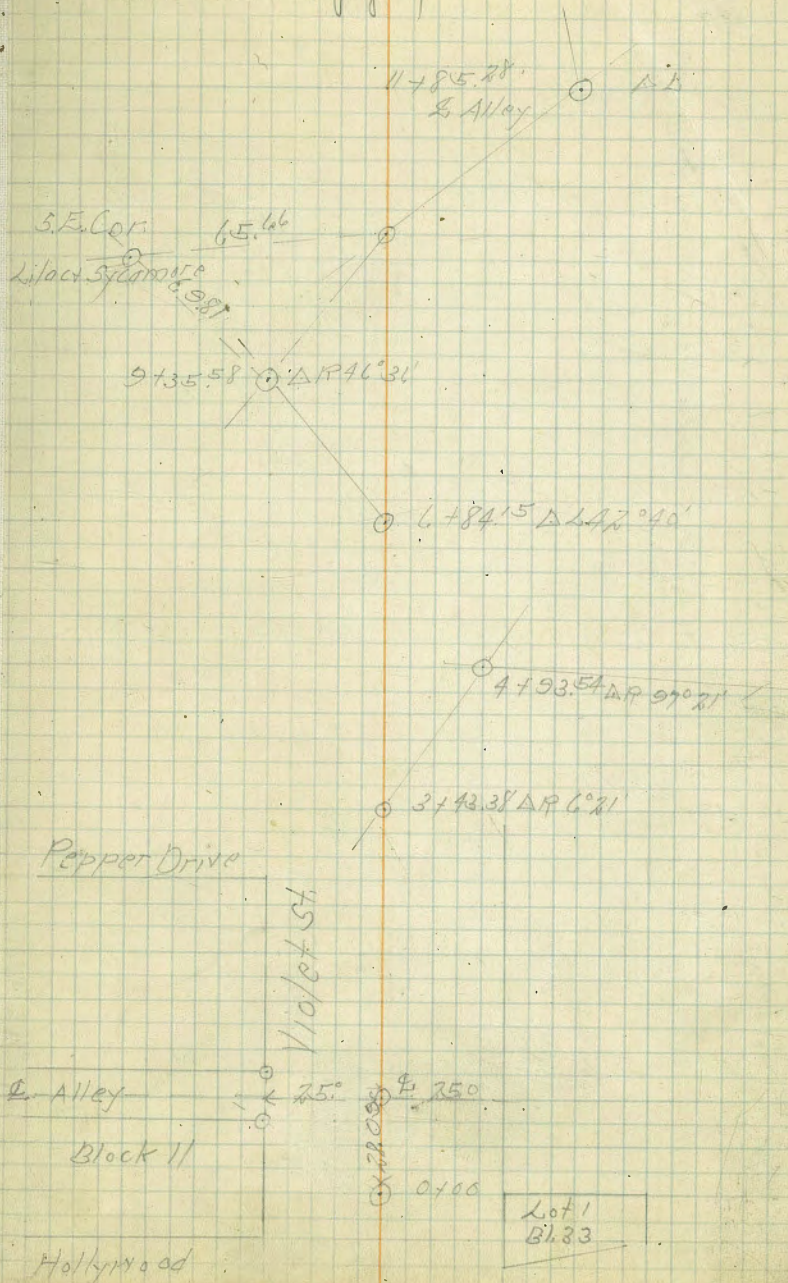 11+85.28
℄ Alley
S.E. Cor.
65.66
Lilac & Sycamore
69.81
9+35.58 ΔR 46°36'
6+84.15 ΔL 42°40'
4+93.54 ΔR 97°21'
3+43.38 ΔR 6°21'
Pepper Drive
Violet St.
℄ Alley
25.0
℄ 250
Block 11
0+00
Lot 1
Bl. 33
Hollywood